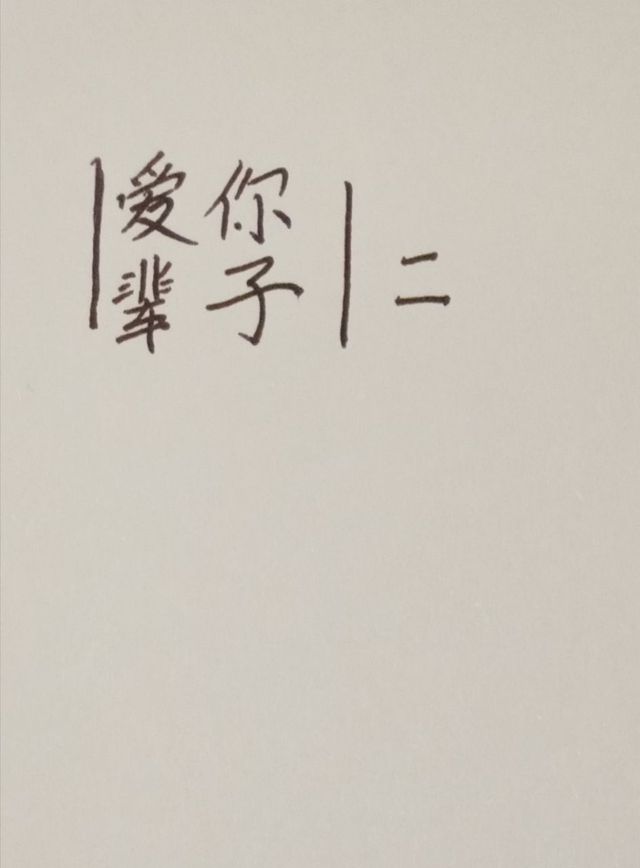 |爱 你|
|辈 子| =